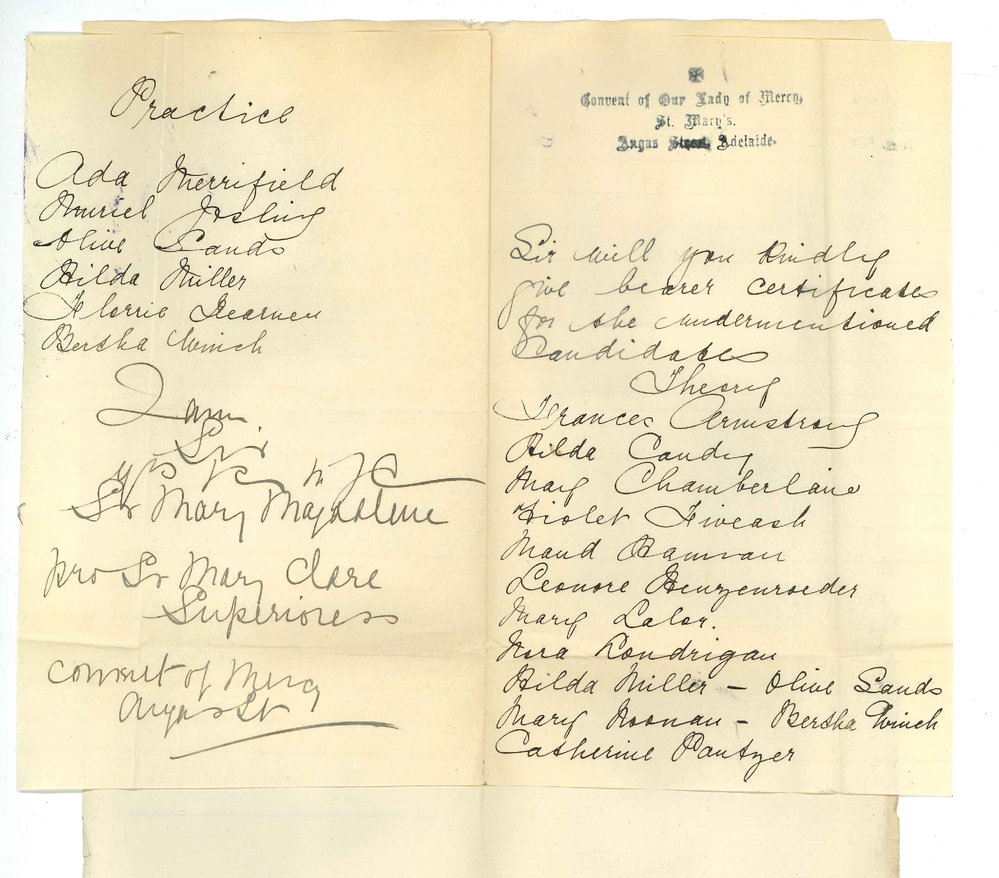 Convent of Our Lady of Mercy,
St. Mary's.
Angas Street, Adelaide.
Sir will you kindly
give bearer certificates
for the undermentioned
Candidates
Theory
Frances Armstrong
Hilda Candy
Mary Chamberlain
Violet Fiveash
Maud Hannan
Leonore Henzenroeder
Mary Lalor.
Nora Londrigan
Hilda Miller – Olive Sands
Mary Noonan – Bertha Winch
Catherine Pantzer
Practice
Ada Merrifield
Muriel Josling
Olive Sands
Hilda Miller
Florrie Kearney
Bertha Winch
I am
Sir
Sr Mary Magdalene
pro Sr Mary Clare
Superioress
Convent of Mercy
Angas St